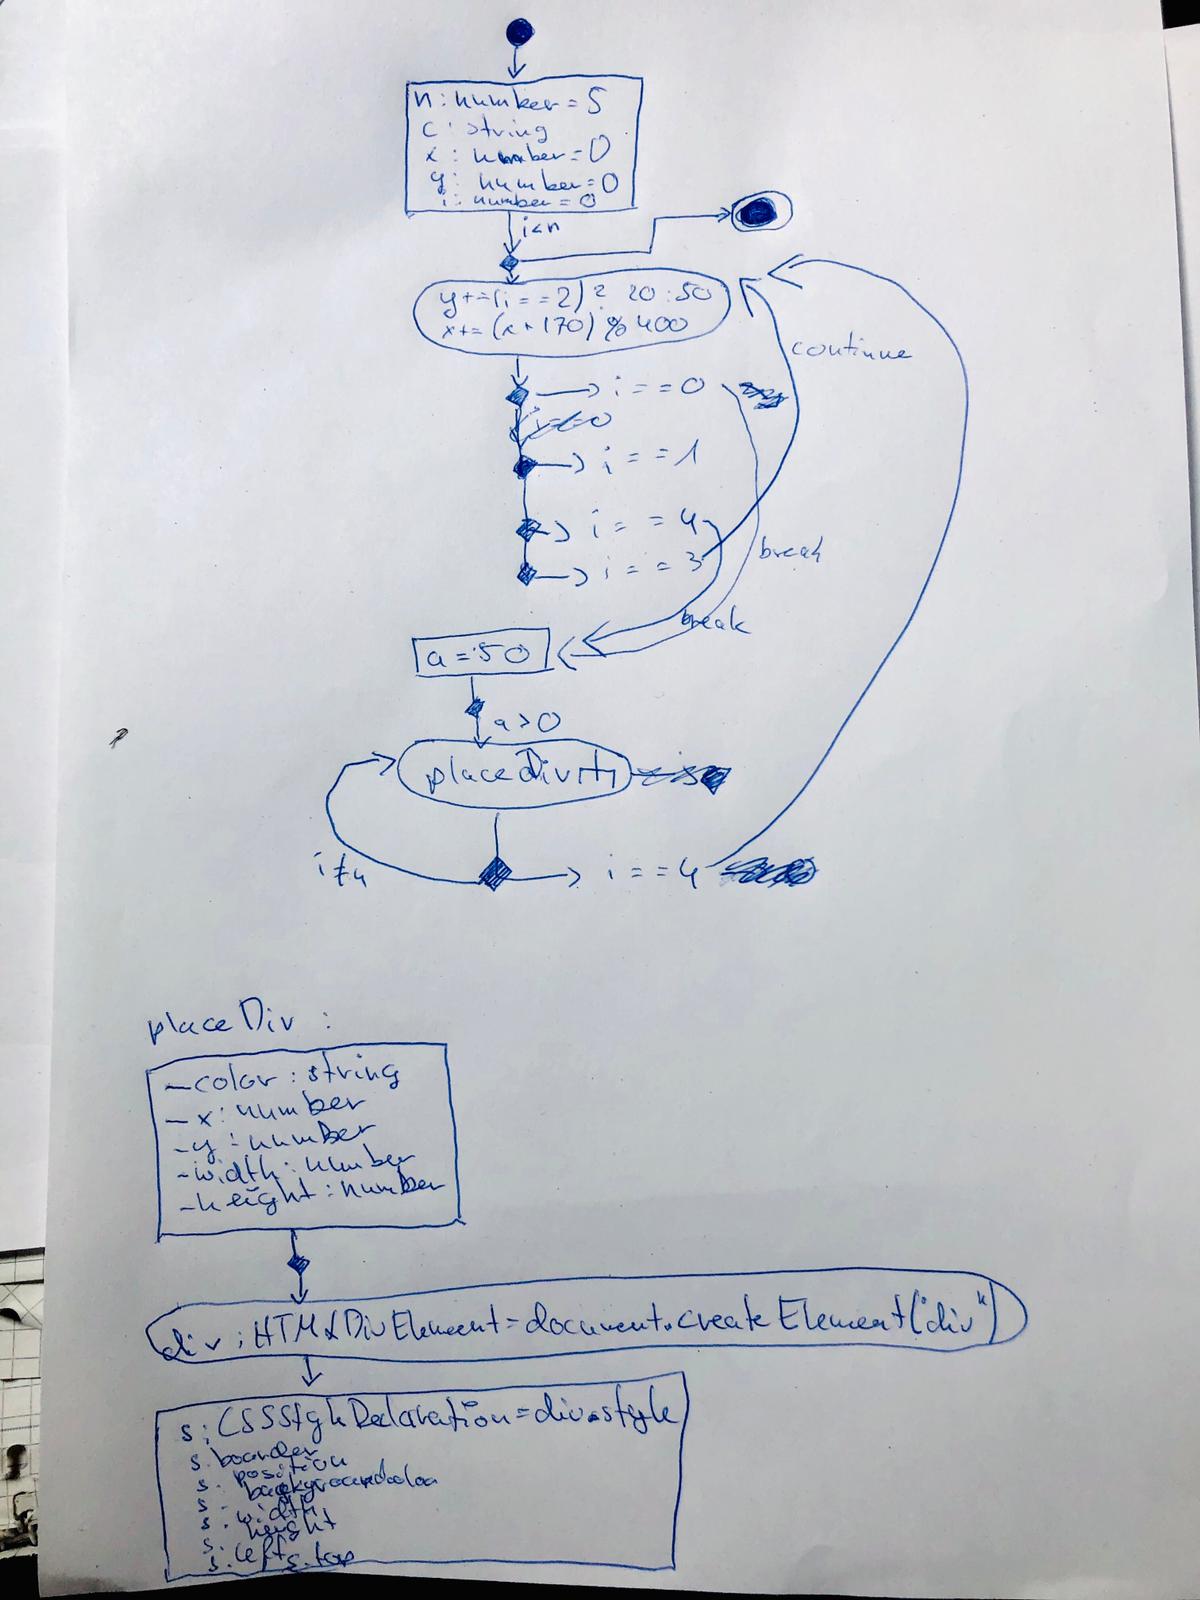 n : number = 5
c : string
x : number = 0
y : number = 0
i : number = 0
i<n
y+=(i==2)? 20:50
x+= (x+170) % 400
continue
i==0
i==0
i==1
i==4
i==3
break
break
a=50
a>0
placeDiv
i≠4
i==4
placeDiv :
-color : string
-x : number
-y : number
-width : number
-height : number
div : HTMLDivElement=document.createElement("div")
s : CSSStyleDeclaration=div.style
s. boarder
s. position
s. backgroundcolor
s. width
s. height
s. left
s. top